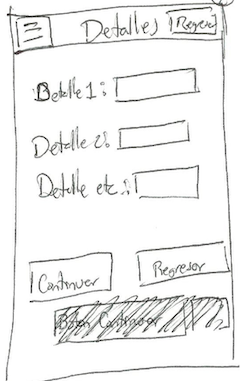 Detalles Regresar
Detalle 1:
Detalle 2:
Detalle etc.:
Continuar Regresar
Boton Continuar